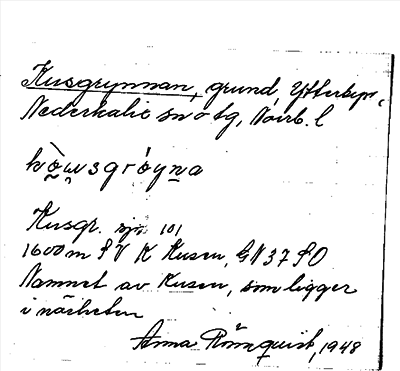 Kusgrynnan, grund, Ytterbyn,
Nederkalix sn o tg, Norrb. l
kòwsgróyna
Kusgr. sjö. 101
1600 m SV K Kusen, GV 37 SO
Namnet av Kusen, som ligger
i närheten
Anna Rönnquist, 1948